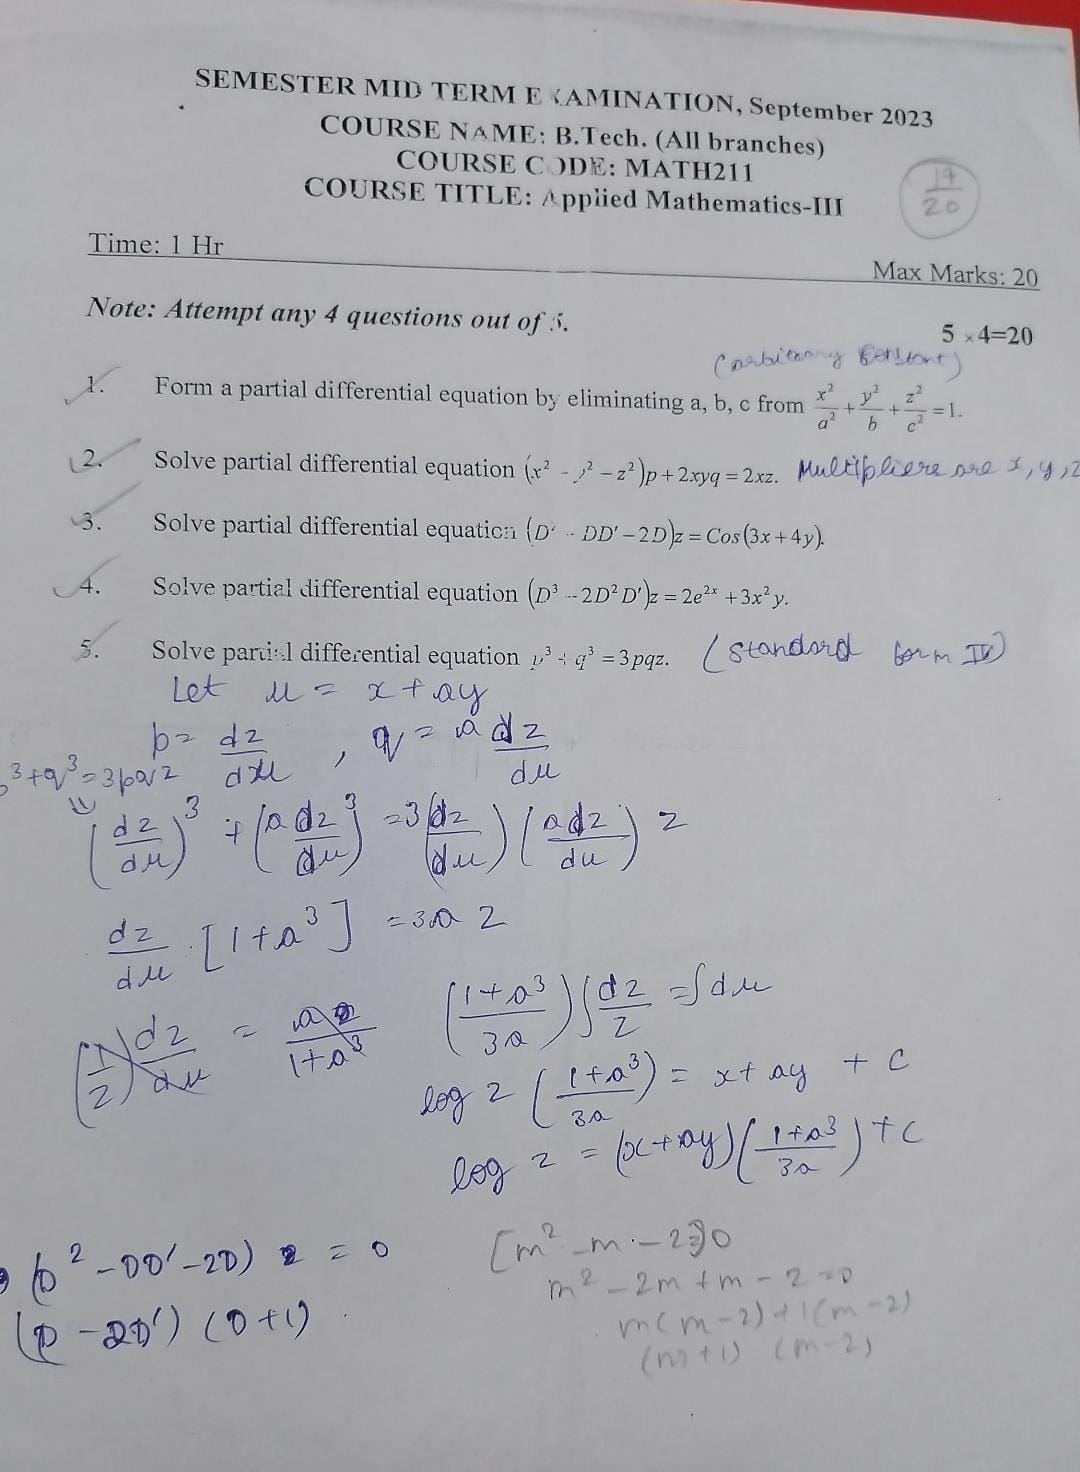 SEMESTER MID TERM EXAMINATION, September 2023
COURSE NAME: B.Tech. (All branches)
COURSE CODE: MATH211
COURSE TITLE: Applied Mathematics-III
19/20
Time: 1 Hr
Max Marks: 20
Note: Attempt any 4 questions out of 5.
5 ×4=20
(arbitrary constant)
1. Form a partial differential equation by eliminating a, b, c from x²/a² + y²/b + z²/c² = 1.
2. Solve partial differential equation (x² - y² - z²)p + 2xyq = 2xz. Multipliers are x, y, z
3. Solve partial differential equation (D² - DD' - 2D)z = Cos(3x + 4y).
4. Solve partial differential equation (D³ - 2D²D')z = 2e²ˣ + 3x²y.
5. Solve partial differential equation p³ + q³ = 3pqz. (Standard form IV)
Let u = x + ay
p = dz/du , q = a dz/du
p³+q³=3pqz
(dz/du)³ + (a dz/du)³ = 3(dz/du)(a dz/du) z
dz/du [1+a³] = 3a z
(1/z) dz/du = a/1+a³ (1+a³/3a) ∫dz/z = ∫du
log z (1+a³/3a) = x + ay + c
log z = (x+ay)(1+a³/3a) + c
(D² - DD' - 2D) z = 0 [m² - m - 2=]0
(D - 2D') (D + 1) m² - 2m + m - 2 = 0
m(m-2) + 1(m-2)
(m+1) (m-2)